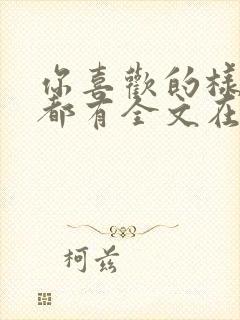 你喜歡的樣
都有全文在
柯兹